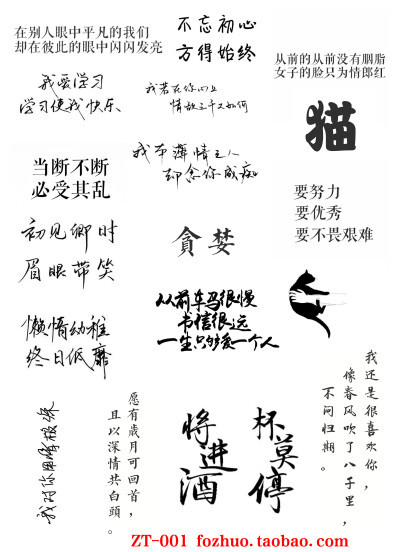 在别人眼中平凡的我们
却在彼此的眼中闪闪发亮
不忘初心
方得始终
从前的从前没有胭脂
女子的脸只为情郎红
我爱学习
学习使我快乐
我若在你心上
情敌三千又如何
猫
我本薄情之人
却念你成痴
当断不断
必受其乱
要努力
要优秀
要不畏艰难
初见卿时
眉眼带笑
貪婪
从前车马很慢
书信很远
一生只够爱一个人
懒惰幼稚
终日低靡
我还是很喜欢你，
像春风吹了八千里，
不问归期。
愿有岁月可回首，
且以深情共白頭。
将进酒
杯莫停
ZT-001 fozhuo.taobao.com